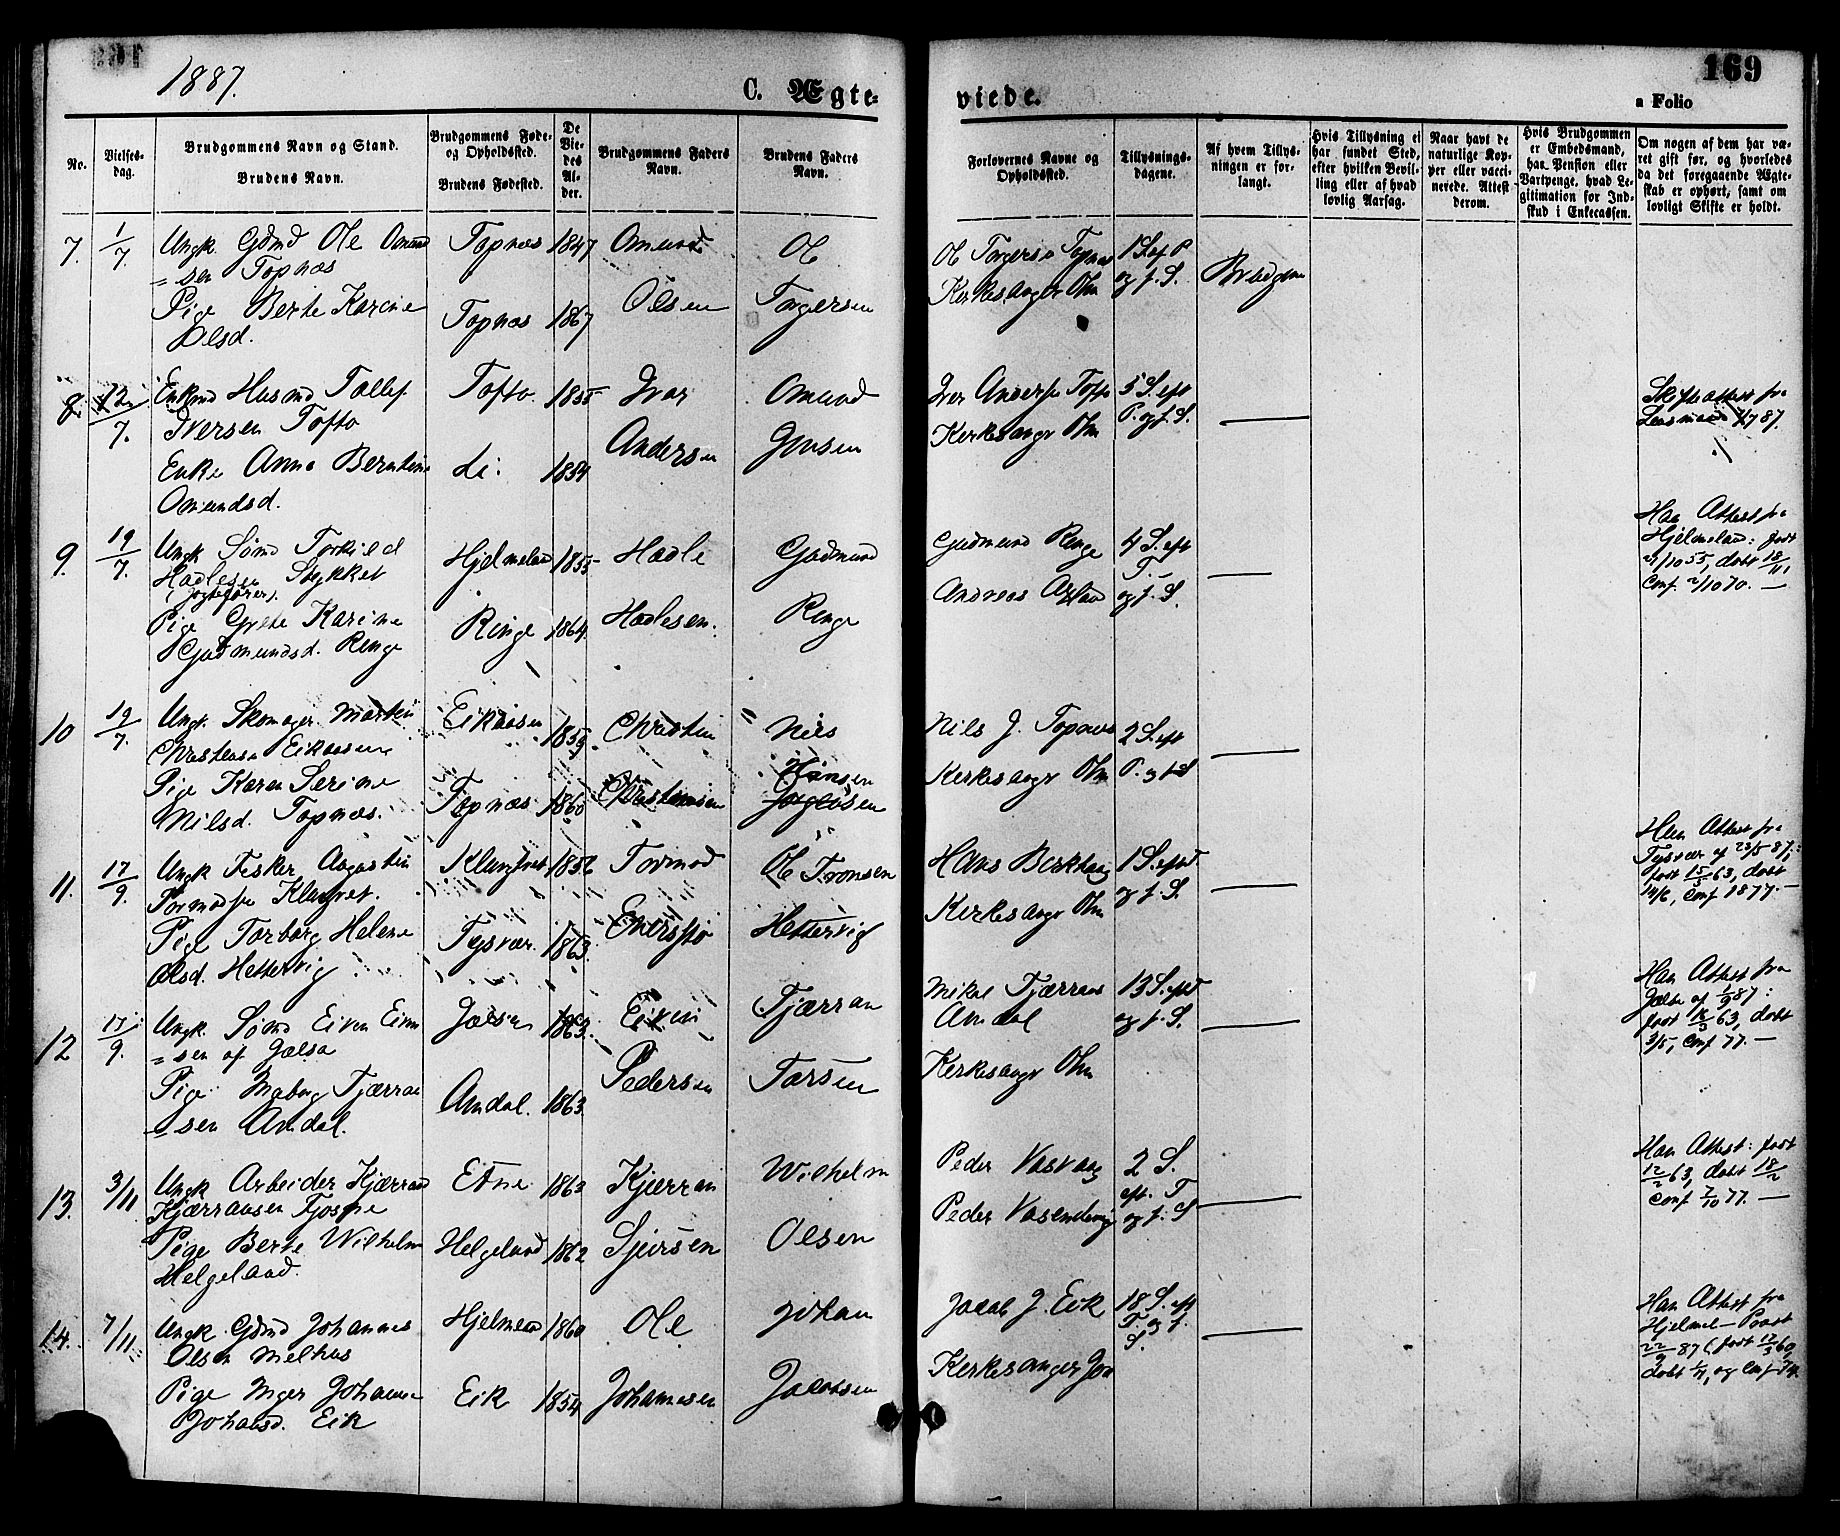 1887.
C. Ægte-
viede.
169
a Folio
No.
Vielses-
dag.
Brudgommens Navn og Stand.
Brudens Navn.
Brudgommens Føde-
og Opholdssted.
Brudens Fødested.
De
Vie-
des
Al-
der.
Brudgommens Faders
Navn.
Brudens Faders
Navn.
Forlovernes Navne og
Opholdssted.
Tillysnings-
dagene.
Af hvem Tillys-
ningen er for-
langt.
Hvis Tillysning ei
har fundet Sted,
efter hvilken Bevil-
ling eller af hvad
lovlig Aarsag.
Naar havt de
naturlige Kop-
per eller vacci-
nerede. Attest
derom.
Hvis Brudgommen
er Embedsmand,
har Pension eller
Vartpenge, hvad Le-
gitimation for Ind-
skud i Enkecassen.
Om nogen af dem har væ-
ret gift før, og hvorledes
da det foregaaende Ægte-
skab er ophørt, samt om
lovligt Skifte er holdt.
7. 1/7 Ungk. Gdmd Ole Omund
=sen Topnæs
Pige Berte Karine
Olsd.
Topnæs 1847
Topnæs 1867
Omund
Olsen
Ol
Torgersen
Ol Torgers. Topnæs
Kirkesanger Ohm
1 S. ef P
og f. S.
Brudgm
8. 12/7. Enkmd Husmd Tollef
Iversen Tofto
Enke Anna Berntine
Omundsd.
Tofto 1855
Li 1854
Ivar
Andersen
Omund
Jonsen
Iver Anders. Tofto
Kirkesangr Ohm
5 S. eft
P. og f. S.
Skifteattest fra
Lensmand 7/7 87.
9. 19/7. Ungk Sømd Torkild
Hadlesen Stykket
(Jægtefører).
Pige Grete Karine
Gudmundsd. Ringe
Hjelmeland 1855
Ringe 1864
Hadle
Hadlesen.
Gudmund
Ringe
Gudmund Ringe
Andreas
4 S. eft
T.
og f. S.
Han Attest fra
Hjelmeland: født
21/10 55, døbt 18/11
Conf. 2/10 70. —
10 19/7. Ungk. Skomager Martin
Christens. Eikaasen
Pige Karen Serine
Nilsd. Topnæs.
Eikaasen 1859.
Topnæs 1860
Christen
Christensen
Nils
Hansen
Nils J. Topnæs
Kirkesangr Ohm
2 S. eft
P. og f. S
11. 17/9. Ungk Fisker Augustin
Tormods. Klungtvet.
Pige Torborg Helene
Olsd. Hettervig
Klungtvet 1856
Tysvær 1863.
Tormod
Ol Tronsen
Hettervig
Hans Birkhaug
Kirkesangr Ohm
1 S. eft
og f. S.
Han Attest fra
Tysvær af 23/5 87.:
født 15/3 63, døbt
14/6, Conf 1877. —
12 17/9. Ungk. Sømd Eiven Eiven
=sen af Jælsa
Pige Tjærran
=sen Amdal.
Jælsa 1863.
Amdal. 1863.
Eiven
Pedersen
Tjærran
Torsen
Mikal Tjærrans
Amdal
Kirkesangr Ohm
13 S. eft
og f. S.
Han Attest fra
Jælse af 1/9 87:
63, døbt
3/5, Conf 77. —
13. 3/11 Ungk Arbeider Kjærran
Kjærransen Fjosne
Pige Berte Wilhelm
Helgeland.
Etne 1863
Helgeland 1862
Kjærran
Sjursen
Wilhelm
Olsen
Peder Vasvaag
Peder Vasendvig
2 S.
eft. T
og f. S
Han Attest: født
12/2 63, døbt 18/2
Conf 7/10 77. —
14. 7/11. Ungk. Gdmd Johannes
Olsen Melhus
Pige Inger Johanne
Johansd. Eik
Hjelmeland 1860
Eik 1854
Ole
Johannesen
Johan
Jacobsen
Jacob J. Eik
Kirkesanger Jon
18 S. eft
T. og f.
S.
Han Attest fra
Hjelmel— Præst
22/9 87, født 17/3 60,
døbt 1/4, og Conf 74.